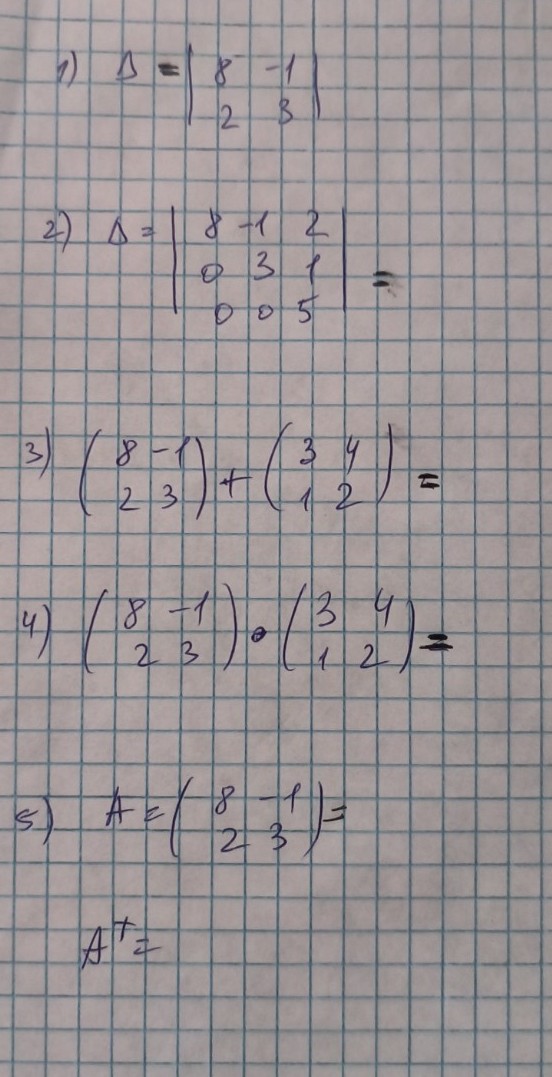 1) Δ = | 8 -1 |
| 2 3 |
2) Δ = | 8 -1 2 |
| 0 3 1 | =
| 0 0 5 |
3) ( 8 -1 ) + ( 3 4 ) =
( 2 3 ) ( 1 2 )
4) ( 8 -1 ) • ( 3 4 ) =
( 2 3 ) ( 1 2 )
5) A = ( 8 -1 ) =
( 2 3 )
A^T =